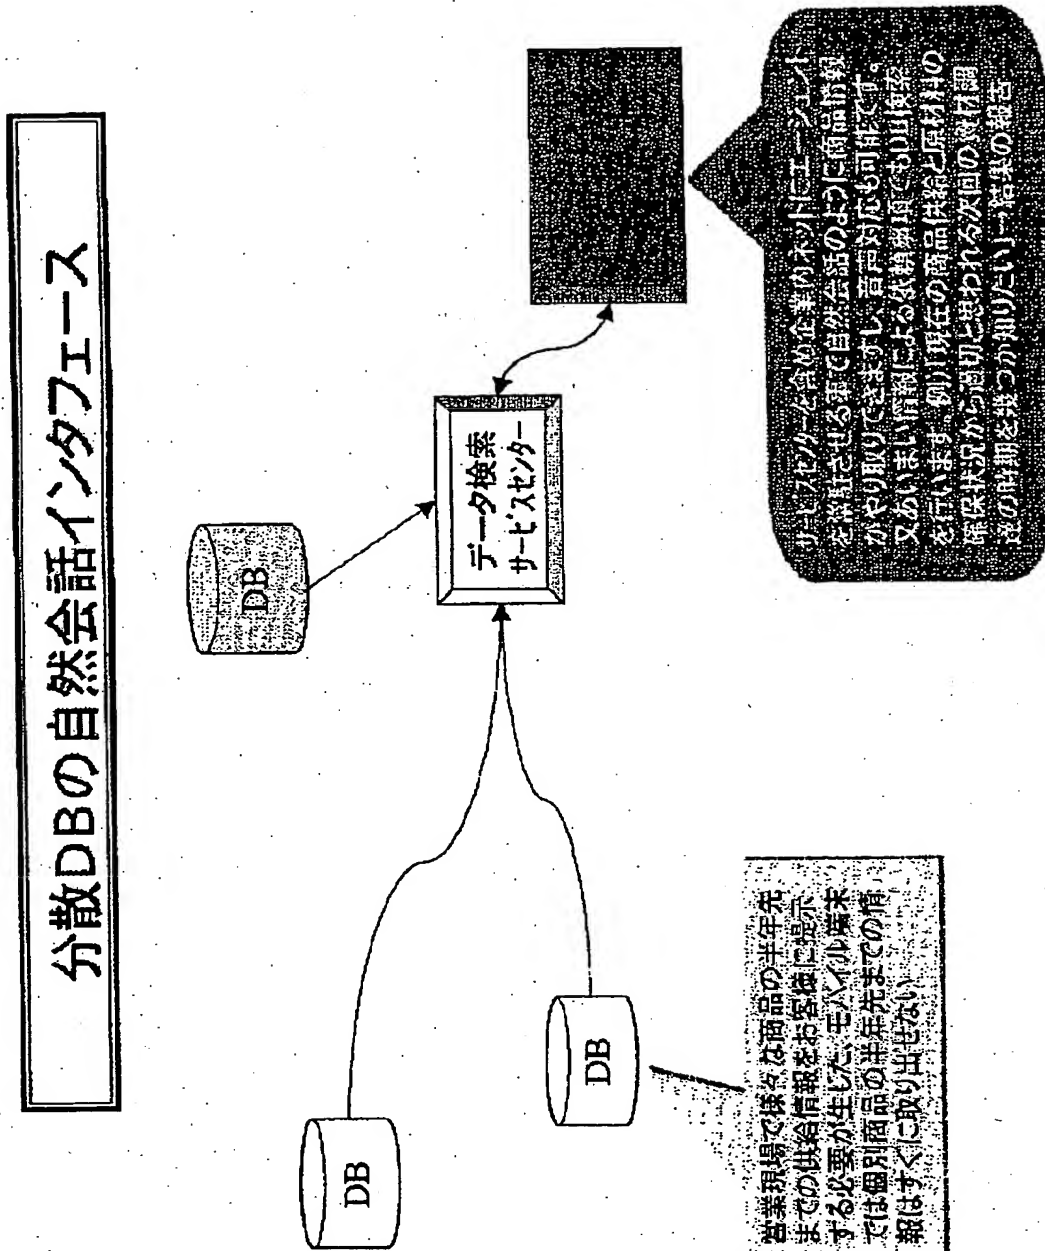 分散DBの自然会話インタフェース
DB
DB
DB
データ検索
サービスセンター
営業現場で様々な商品の半年先
までの供給情報をお客様に提示
する必要が生じた、モバイル端末
では個別商品の半年先までの情
報はすぐに取り出せない
サービスセンターと含め企業内ネットにエージェント
を常駐させる事で自然会話のように商品情報
がやり取りできますし、音声対応も可能です。
又あいまい情報による依頼事項でも
を行います。例)「現在の商品供給と原材料の
確保状況から適切と思われる次回の資材調
の時期を幾つか知りたい」→結果の報告